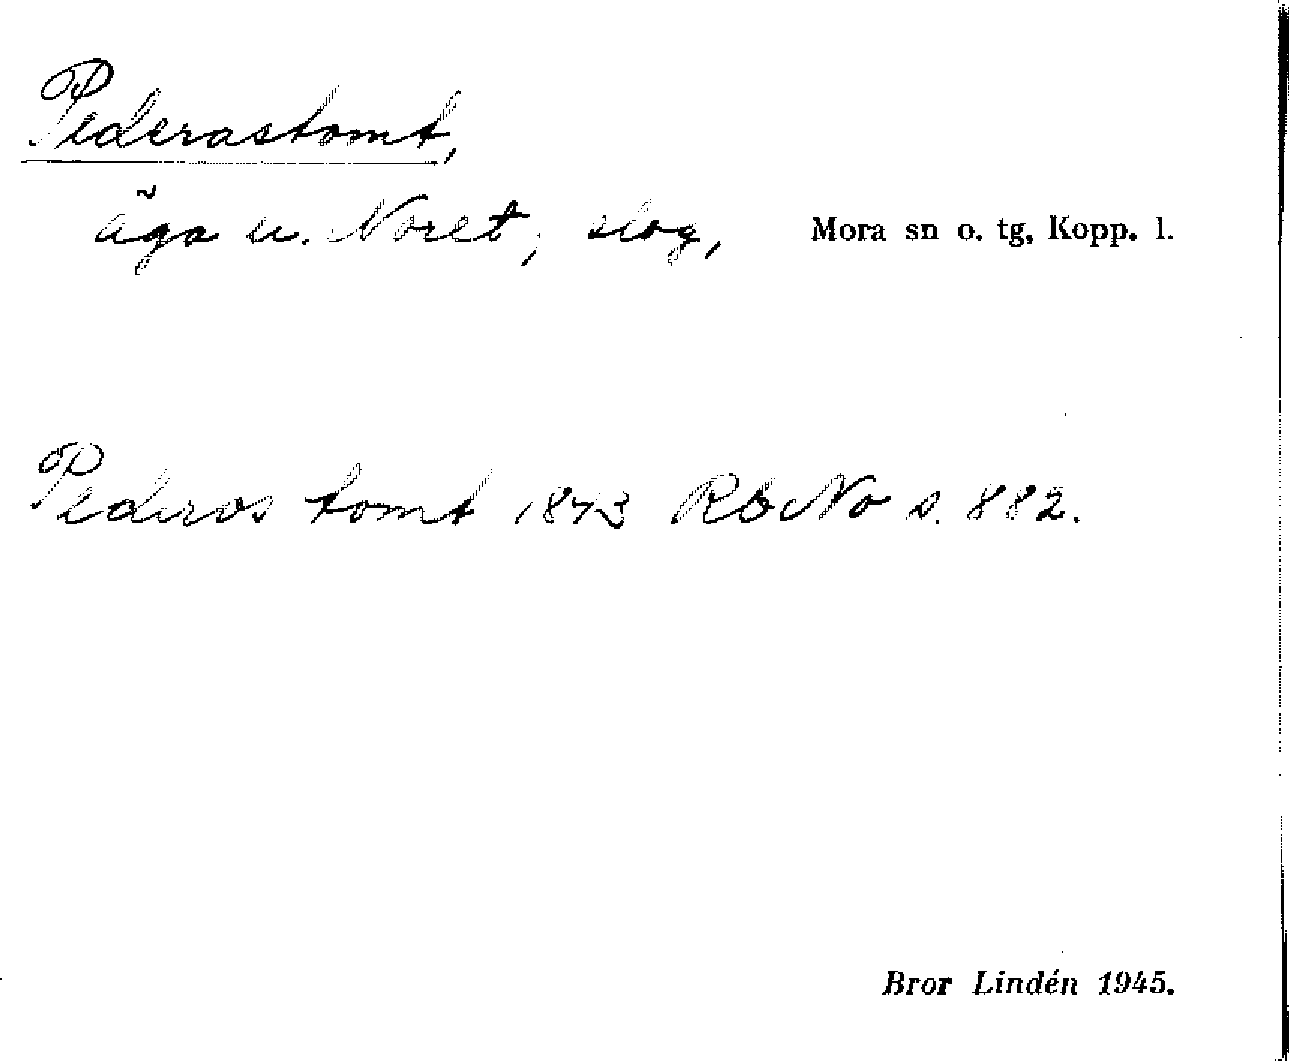 Pederastomt,
äga u. Noret, slog, Mora sn o. tg, Kopp. l.
Pederos tomt 1873 RbNo s. 882.
Bror Lindén 1945.